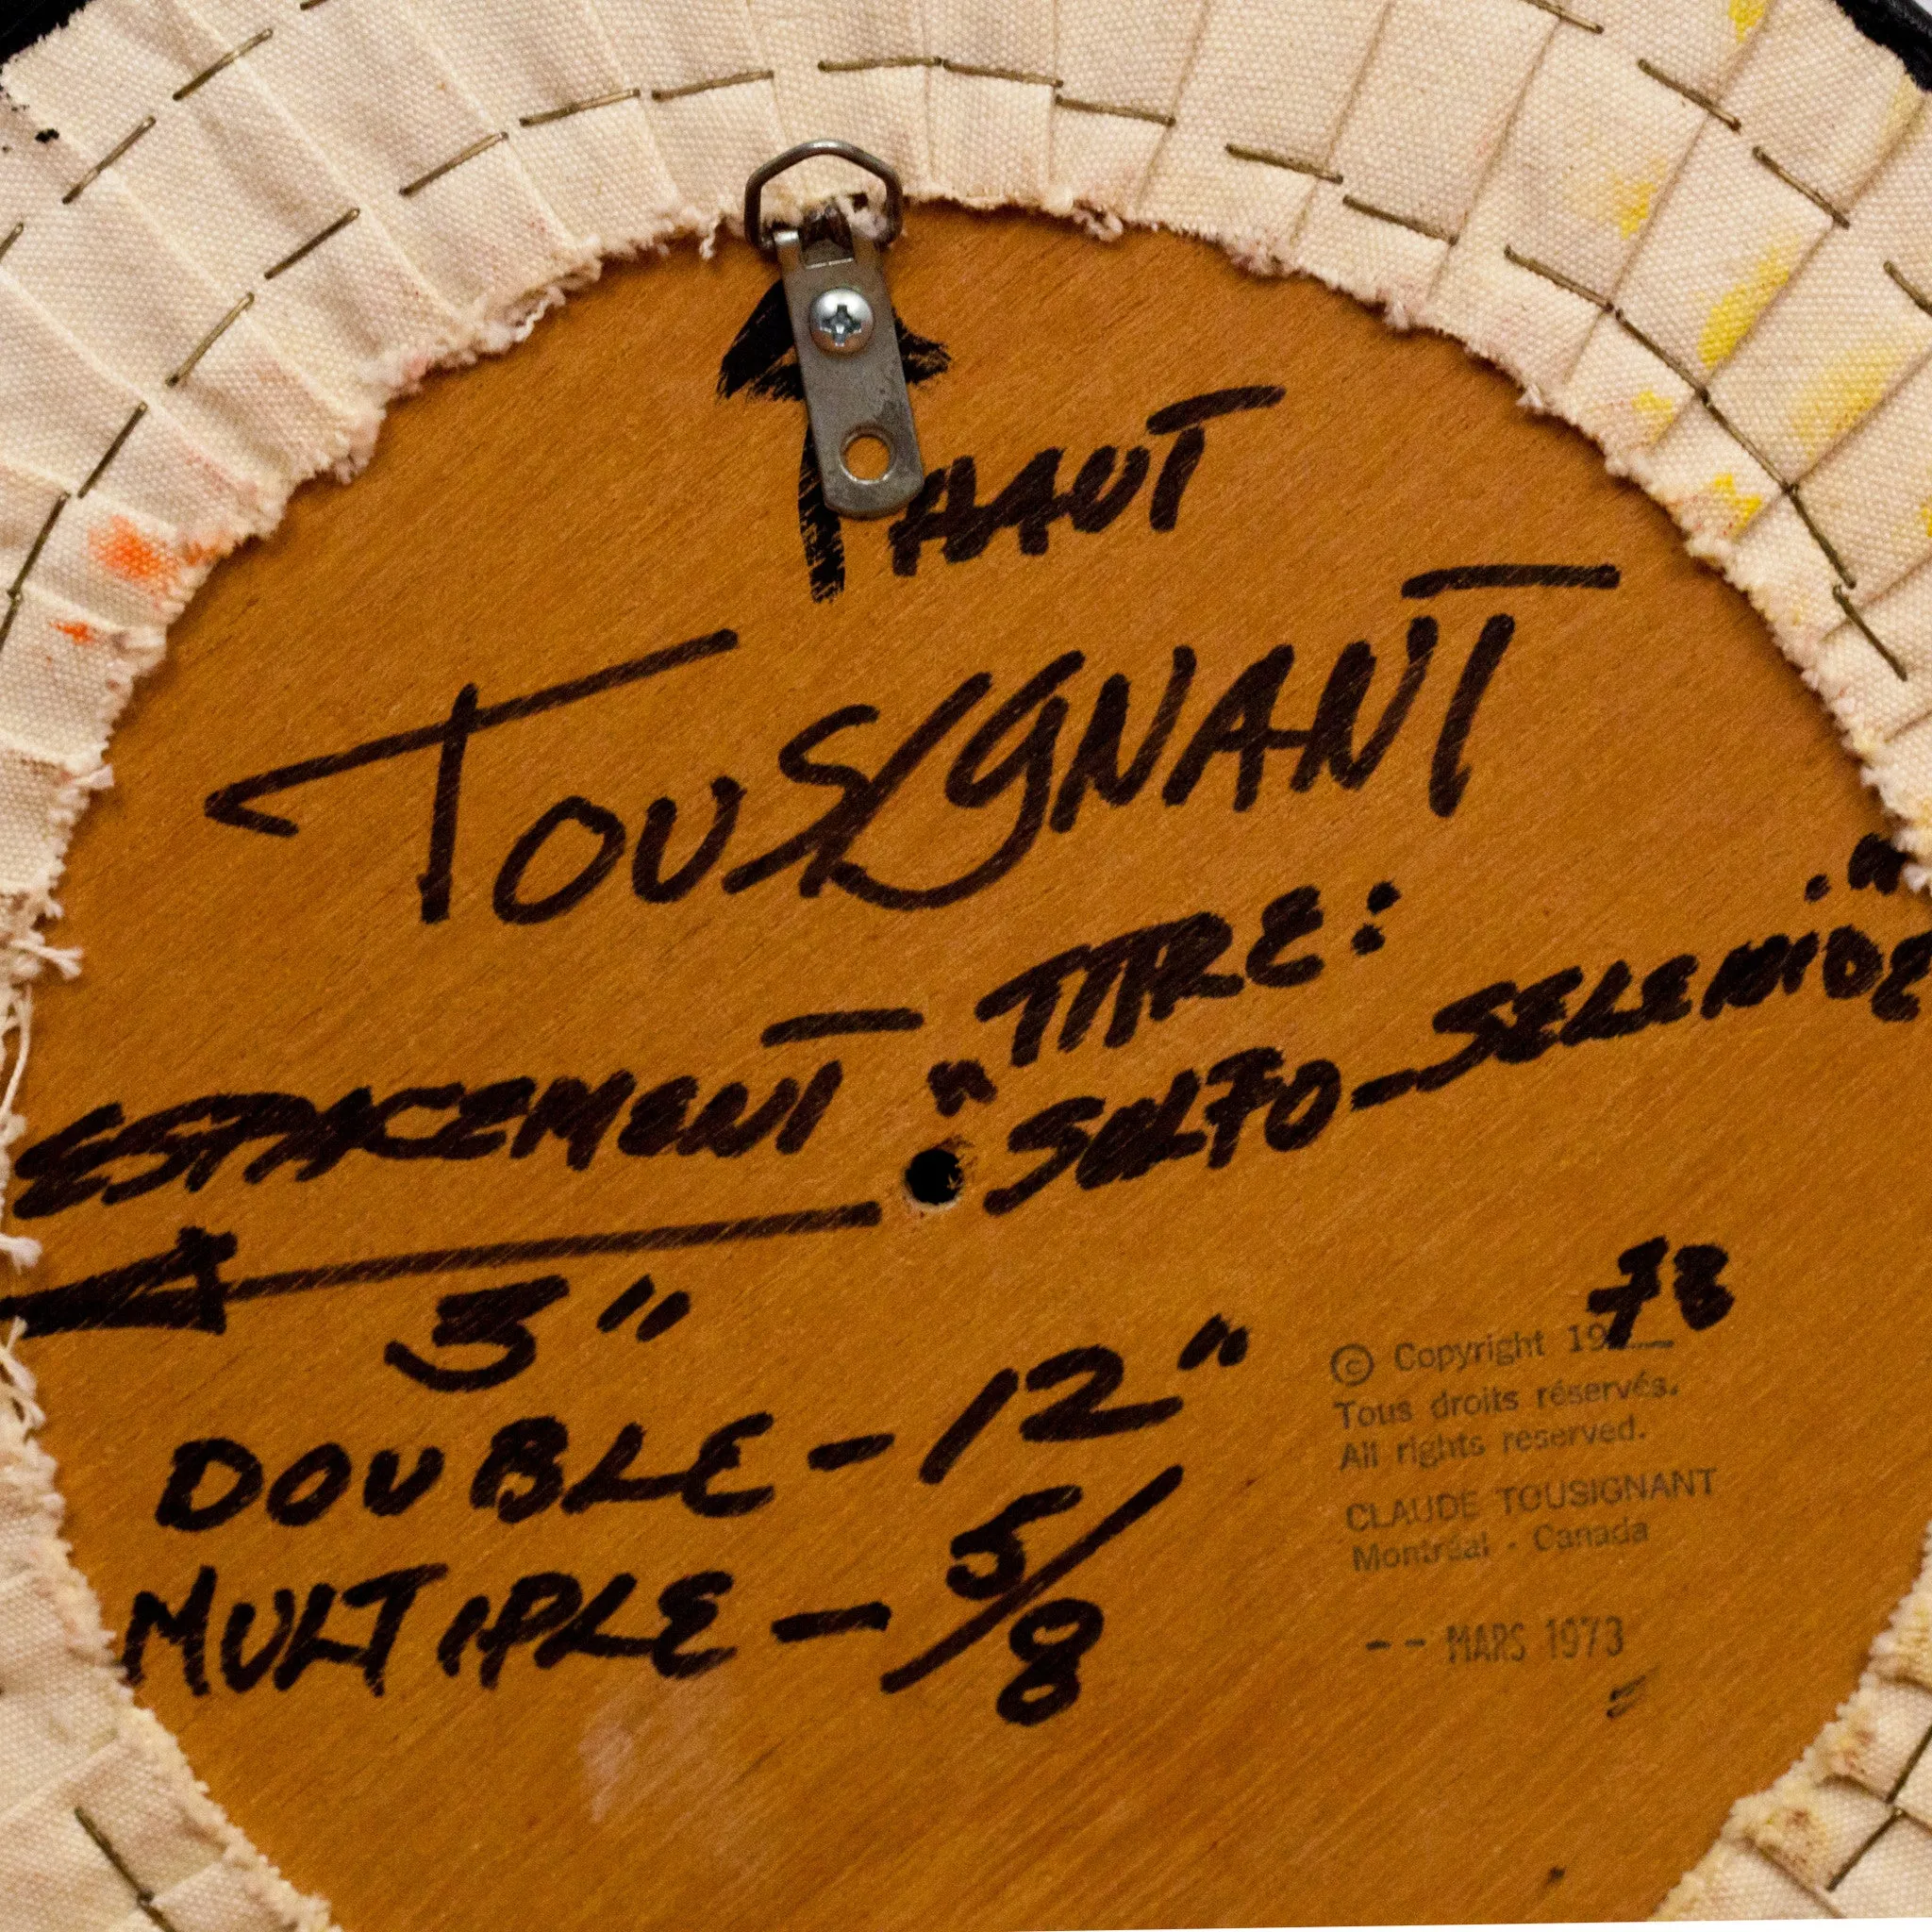 HAUT
TOUSIGNANT
TITRE:
"SULFO-SELENIDE."
ESPACEMENT
3"
DOUBLE-12"
MULTIPLE-5/8
© Copyright 1973
Tous droits réservés.
All rights reserved.
CLAUDE TOUSIGNANT
Montréal - Canada
-- MARS 1973